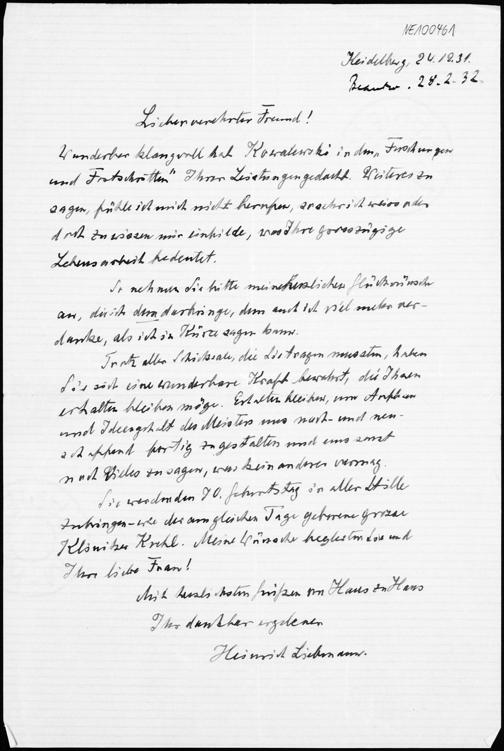 NE100461
Heidelberg, 24.12.31.
Beantw. 28.2.32
Lieber verehrter Freund!
Wunderbar klangvoll hat Kowalewski in den „Forschungen
und Fortschritten" Ihrer Leistungen gedacht. Weiteres zu
sagen, fühle ich mich nicht berufen, so sehr ich weiss oder
doch zu wissen mir einbilde, was Ihre grosszügige
Lebensarbeit bedeutet.
So nehmen Sie bitte meine herzlichen Glückwünsche
an, die ich dem darbringe, dem auch ich viel mehr ver-
danke, als ich in Kürze sagen kann.
Trotz aller Schicksale, die Sie tragen mussten, haben
Sie sich eine wunderbare Kraft bewahrt, die Ihnen
erhalten bleiben möge. Erhalten bleiben, um Aufbau
und Ideengehalt des Meisters uns nach- und neu-
schaffend fertig zu gestalten und uns sonst
noch Vieles zu sagen, was kein anderer vermag.
Sie werden den 70. Geburtstag in aller Stille
zubringen - wie der am gleichen Tage geborene grosse
Kliniker Krehl. Meine Wünsche begleiten Sie und
Ihre liebe Frau!
Mit herzlichsten Grüßen von Haus zu Haus
Ihr dankbar ergebener
Heinrich Liebmann.